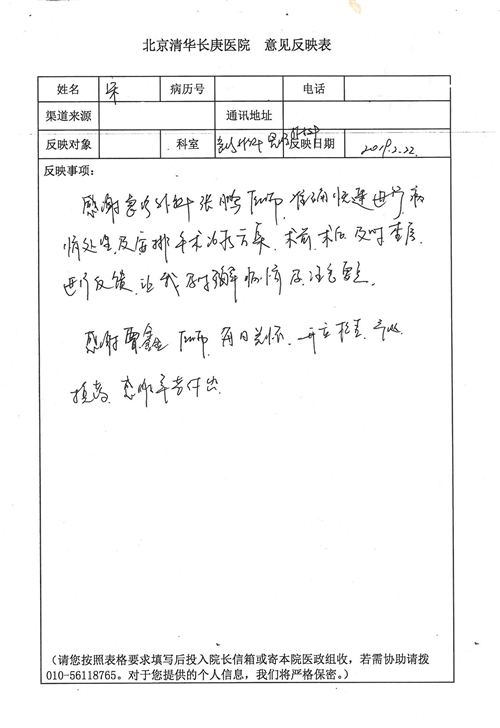 北京清华长庚医院 意见反映表
姓名 宋 病历号 电话
渠道来源 通讯地址
反映对象 科室 急诊外科 反映日期 2019.2.22
反映事项:
感谢急诊外科张鹏医师,准确快速进行病
情处理及安排手术治疗方案,术前、术后及时查房,
进行反馈,让我及时了解病情及注意要点。
感谢贾鑫医师,每日关怀、开立检查、
换药,感谢辛苦付出
(请您按照表格要求填写后投入院长信箱或寄本院医政组收,若需协助请拨
010-56118765。对于您提供的个人信息,我们将严格保密。)